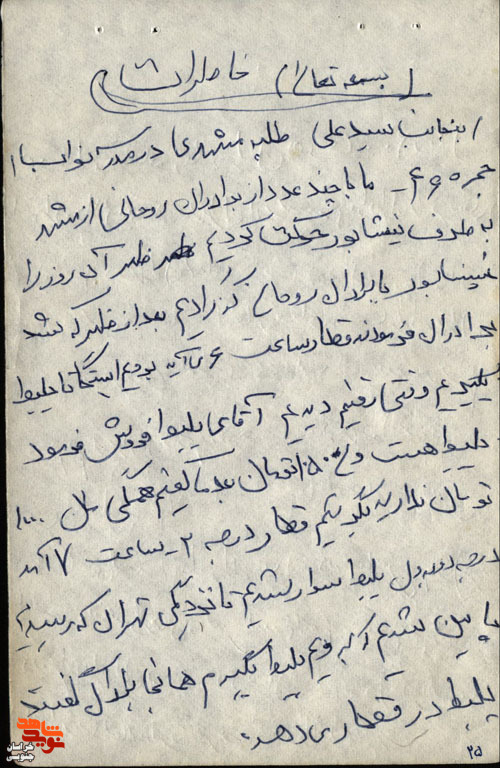 بسمه تعالی خاطرات ۶
اینجانب سیدعلی طلبه مشهدی در مدرسه نواب
حجره ۶۵ ما با چند عدد از برادران روحانی از مشهد
به طرف نیشابور حرکت کردیم ظهر آن روز را
نیشابور با برادران روحانی گذرادیم بعد از ظهر که شد
برادران فرمودند قطار ساعت ۶ می‌آید برویم ایستگاه تا بلیط
بگیریم وقتی رفتیم دیدیم آقای بلیط فروش فرمود
بلیط هست ولی ۱۵۰۰ تومان بعد ما گفتیم همگی ۱۰۰۰
تومان نداریم بگیریم قطار درجه ۲ ساعت ۷ آمد
بدون بلیط سوار شدیم تا نزدیکی تهران که رسیدیم
پایین شدیم که برویم بلیط بگیرم همانجا برادران گفتند
بلیط در قطار می‌دهند.
۲۵
شاهد
نوید
خراسان
جنوبی